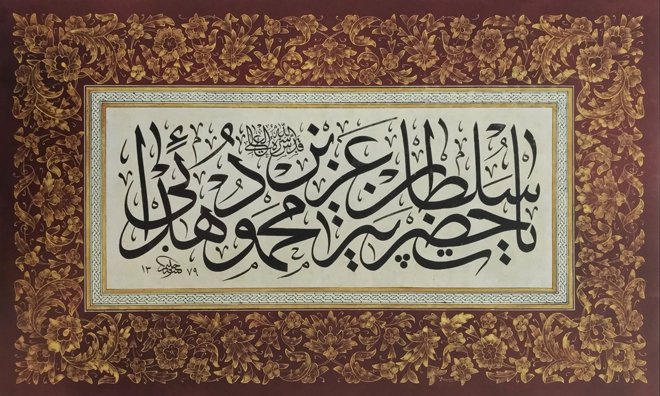 يا حضرت پير سلطان عزيز محمود هدائى
قدس الله سره العالى
حامد ١٣٧٩